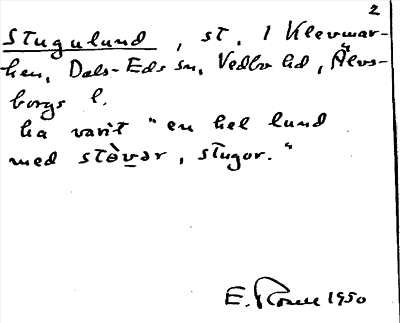 2
Stugulund, st. i Klevmar-
ken, Dals-Eds sn, Vedbo hd, Älvs-
borgs l.
ha varit "en hel lund
med stòvər, stugor."
E. Rosell 1950